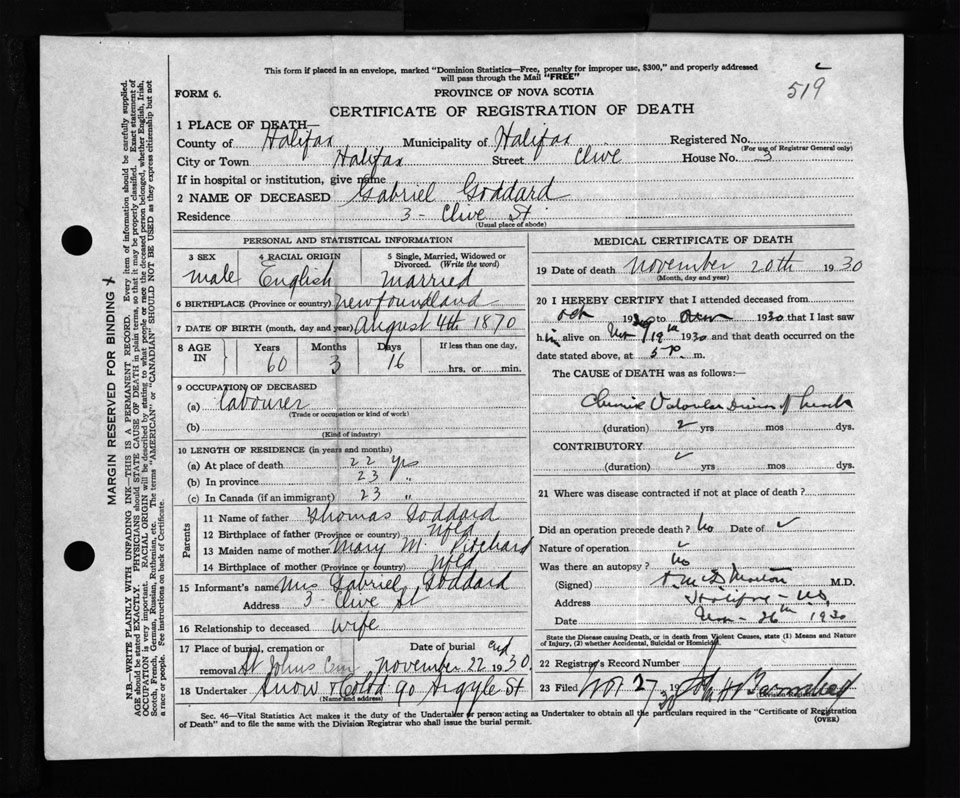 This form if placed in an envelope, marked "Dominion Statistics—Free, penalty for improper use, $300," and properly addressed
will pass through the Mail "FREE"
519
FORM 6.
PROVINCE OF NOVA SCOTIA
CERTIFICATE OF REGISTRATION OF DEATH
1 PLACE OF DEATH—
County of Halifax Municipality of Halifax Registered No.
(For use of Registrar General only)
City or Town Halifax Street Clive House No. 3
If in hospital or institution, give name
2 NAME OF DECEASED Gabriel Goddard
Residence 3 - Clive St.
(Usual place of abode)
PERSONAL AND STATISTICAL INFORMATION
3 SEX 4 RACIAL ORIGIN 5 Single, Married, Widowed or
Divorced. (Write the word)
male English Married
6 BIRTHPLACE (Province or country) Newfoundland
7 DATE OF BIRTH (month, day and year) August 4th 1870
8 AGE IN Years Months Days If less than one day,
60 3 16 hrs. or min.
9 OCCUPATION OF DECEASED
(a) labourer
(Trade or occupation or kind of work)
(b)
(Kind of industry)
10 LENGTH OF RESIDENCE (in years and months)
(a) At place of death 22 yrs
(b) In province 23 "
(c) In Canada (if an immigrant) 23 "
Parents
11 Name of father Thomas Goddard
12 Birthplace of father (Province or country) Nfld
13 Maiden name of mother Mary M. Pritchard
14 Birthplace of mother (Province or country) Nfld
15 Informant's name Mrs Gabriel Goddard
Address 3 - Clive St
16 Relationship to deceased wife
17 Place of burial, cremation or Date of burial
removal St Johns Cem November 22 1930
18 Undertaker Snow & Co Ltd 90 Argyle St
(Name and address)
MEDICAL CERTIFICATE OF DEATH
19 Date of death November 20th 1930
(Month, day and year)
20 I HEREBY CERTIFY that I attended deceased from
193 to 1930 that I last saw
h im alive on Nov 19th 1930 and that death occurred on the
date stated above, at 5 P. m.
The CAUSE of DEATH was as follows:—
Chronic Valvular Disease of heart
(duration) 2 yrs mos dys.
CONTRIBUTORY
(duration) yrs mos dys.
21 Where was disease contracted if not at place of death?
Did an operation precede death? No Date of
Nature of operation
Was there an autopsy? No
(Signed) M.D.
Address Halifax - NS
Date Nov - 26th 1930
State the Disease causing Death, or in death from Violent Causes, state (1) Means and Nature
of Injury, (2) whether Accidental, Suicidal or Homicidal.
22 Registrar's Record Number
23 Filed Nov 27 1930 John H Barnstead
Sec. 46—Vital Statistics Act makes it the duty of the Undertaker or person acting as Undertaker to obtain all the particulars required in the "Certificate of Registration
of Death" and to file the same with the Division Registrar who shall issue the burial permit.
(OVER)
MARGIN RESERVED FOR BINDING
N.B.—WRITE PLAINLY WITH UNFADING INK—THIS IS A PERMANENT RECORD. Every item of information should be carefully supplied.
AGE should be stated EXACTLY. PHYSICIANS should STATE CAUSE OF DEATH in plain terms, so that it may be properly classified. Exact statement of
OCCUPATION is very important. RACIAL ORIGIN will be described by stating to what people or race the deceased person belonged, whether English, Irish,
Scotch, French, German, Russian, Ruthenian, etc. The terms "AMERICAN" or "CANADIAN" SHOULD NOT BE USED as they express citizenship but not
a race or people. See instructions on back of Certificate.